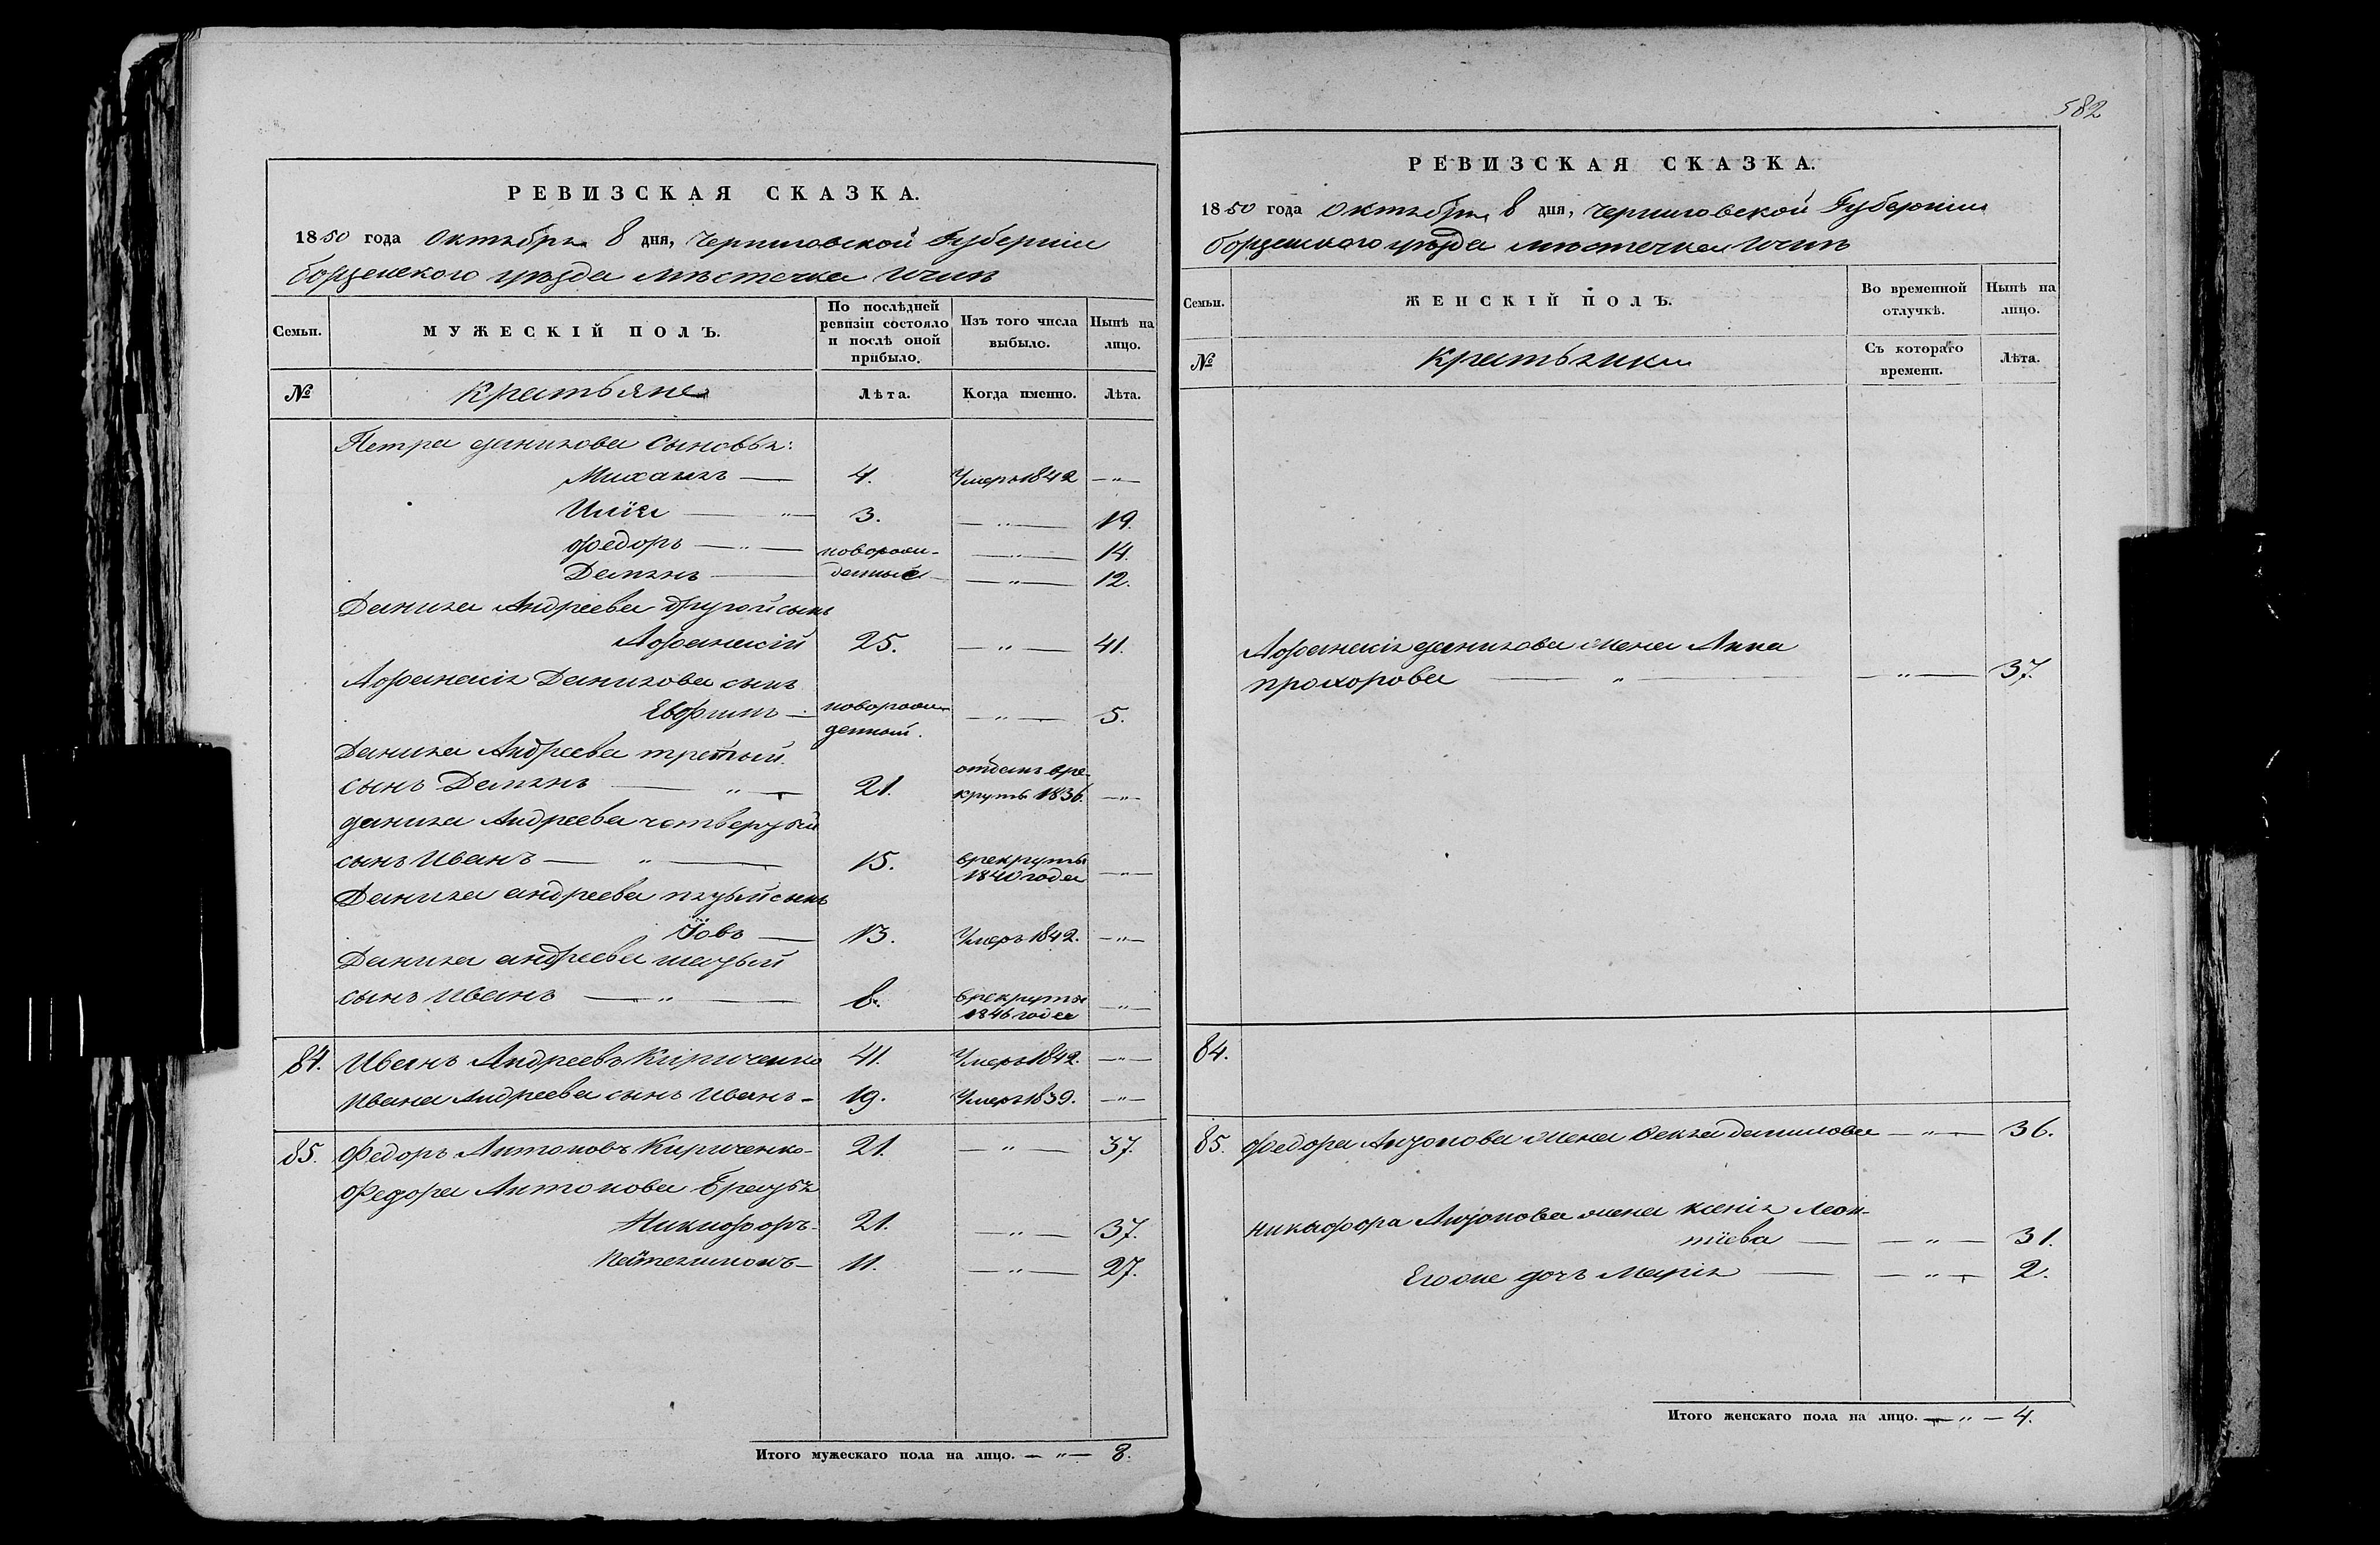 РЕВИЗСКАЯ СКАЗКА.
1850 года Октября 8 дня, Черниговской Губернии
Борзенского уѣзда мѣстечка Ични
Семьи. МУЖЕСКІЙ ПОЛЪ. По послѣдней ревизіи состояло и послѣ оной прибыло. Изъ того числа выбыло. Нынѣ на лицо.
№ Крестьяне Лѣта. Когда именно. Лѣта.
Петра Данилова Сыновья:
Михаилъ — 4. Умеръ 1842 — " —
Илія — " — 3. — " — 19.
Федоръ — " — новорож- — " — 14.
Демянъ — денные — " — 12.
Данила Андреева другой сынъ
Афанасій 25. — " — 41.
Афанасія Данилова сынъ
Евфимъ — новорож- денный. — " — 5.
Данила Андреева третый
сынъ Демянъ — " — 21. отданъ вре- круты 1836. — " —
Данила Андреева четвертый
сынъ Иванъ — " — 15. врекруты 1840 года — " —
Данила Андреева пятый сынъ
Іовъ — 13. Умеръ 1842. — " —
Данила Андреева шестый
сынъ Иванъ — " — 8. врекруты 1846 года — " —
84. Иванъ Андреевъ Кириченко 41. Умеръ 1842. — " —
Ивана Андреева сынъ Иванъ — 19. Умеръ 1839. — " —
85. Федоръ Антоновъ Кириченко — 21. — " — 37.
Федора Антонова Братья
Никифоръ — 21. — " — 37.
Пантелимонъ — 11. — " — 27.
Итого мужескаго пола на лицо. — " — 8.
582
РЕВИЗСКАЯ СКАЗКА.
1850 года Октября 8 дня, Черниговской Губерніи
Борзенского уѣзда мѣстечка Ични
Семьи. ЖЕНСКІЙ ПОЛЪ. Во временной отлучкѣ. Нынѣ на лицо.
№ Крестьянки Съ котораго времени. Лѣта.
Афанасія Данилова жена Анна
Прохорова — " — — " — 37.
84.
85. Федора Антонова жена Фекла Данилова — " — 36.
Никифора Антонова жена Ксенія Леон-
тіева — — " — 31.
Егоже дочь Марія — — " — 2.
Итого женскаго пола на лицо. — " — 4.